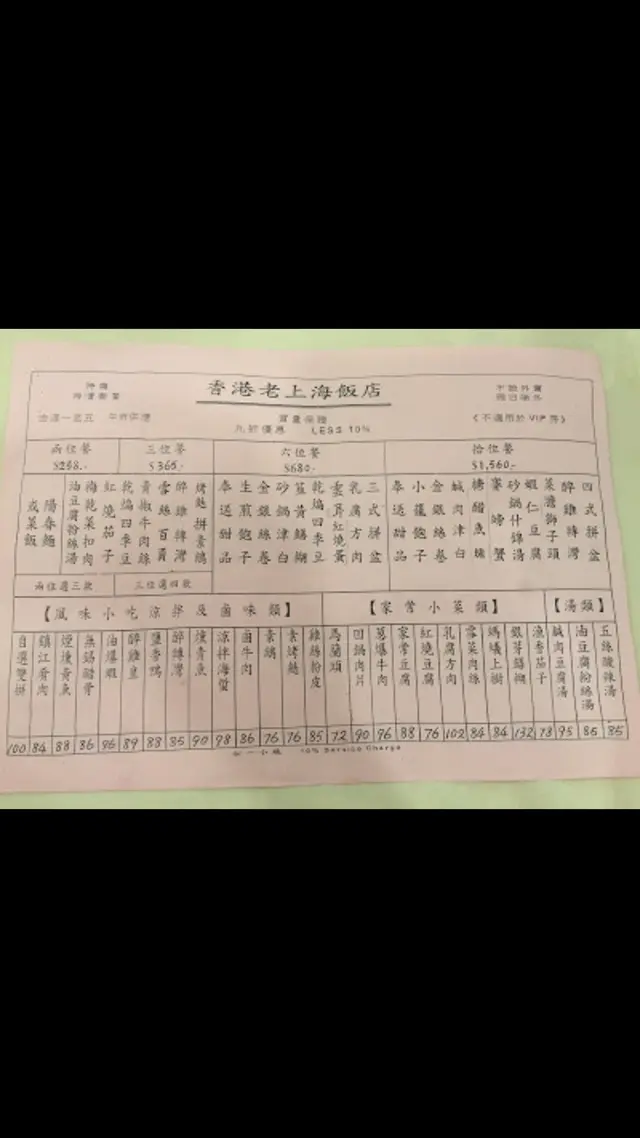 香港老上海飯店
九折優惠 LESS 10%
《不適用於VIP房》
兩位餐
三位餐
六位餐
拾位餐
$365.-
$680.-
$1,560.-
四式拼盆
醉雞轉灣
菜膽獅子頭
蝦仁豆腐
砂鍋什錦湯
賽螃蟹
糖醋魚塊
鹹肉津白
金銀絲卷
小籠飽子
奉送甜品
三式拼盆
乳腐方肉
乾煸四季豆
砂鍋津白
金銀絲卷
生煎飽子
奉送甜品
烤麩拼素鵝
醉雞轉灣
雪絲百頁
青椒牛肉絲
乾煸四季豆
紅燒茄子
梅乾菜扣肉
油豆腐粉絲湯
陽春麵
或菜飯
兩位選三款
三位選四款
【風味小吃涼拌及鹵味類】
【家常小菜類】
【湯類】
五絲酸辣湯
油豆腐粉絲湯
鹹肉豆腐湯
漁香茄子
銀芽鱔糊
螞蟻上樹
雪菜肉絲
乳腐方肉
紅燒豆腐
家常豆腐
葱爆牛肉
回鍋肉片
馬蘭頭
雞絲粉皮
素烤麩
素鵝
鹵牛肉
涼拌海蜇
燻青魚
醉雞灣
油爆蝦
煙燻黃魚
鎮江肴肉
自選雙拼
100 84 88 86 96 89 88 85 90 98 86 76 76 85 72 90 96 88 76 102 84 84 132 78 95 85 85
加一小賬 10% Service Charge